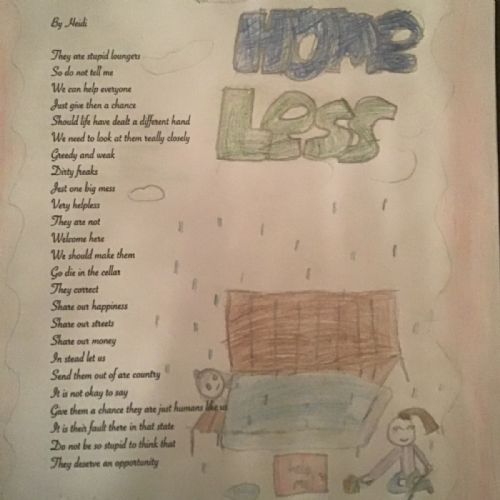 By Heidi
HOME
LESS
They are stupid loungers
So do not tell me
We can help everyone
Just give then a chance
Should life have dealt a different hand
We need to look at them really closely
Greedy and weak
Dirty freaks
Jest one big mess
Very helpless
They are not
Welcome here
We should make them
Go die in the cellar
They correct
Share our happiness
Share our streets
Share our money
In stead let us
Send them out of are country
It is not okay to say
Give them a chance they are just humans like us
It is their fault there in that state
Do not be so stupid to think that
They deserve an opportunity
help
me!